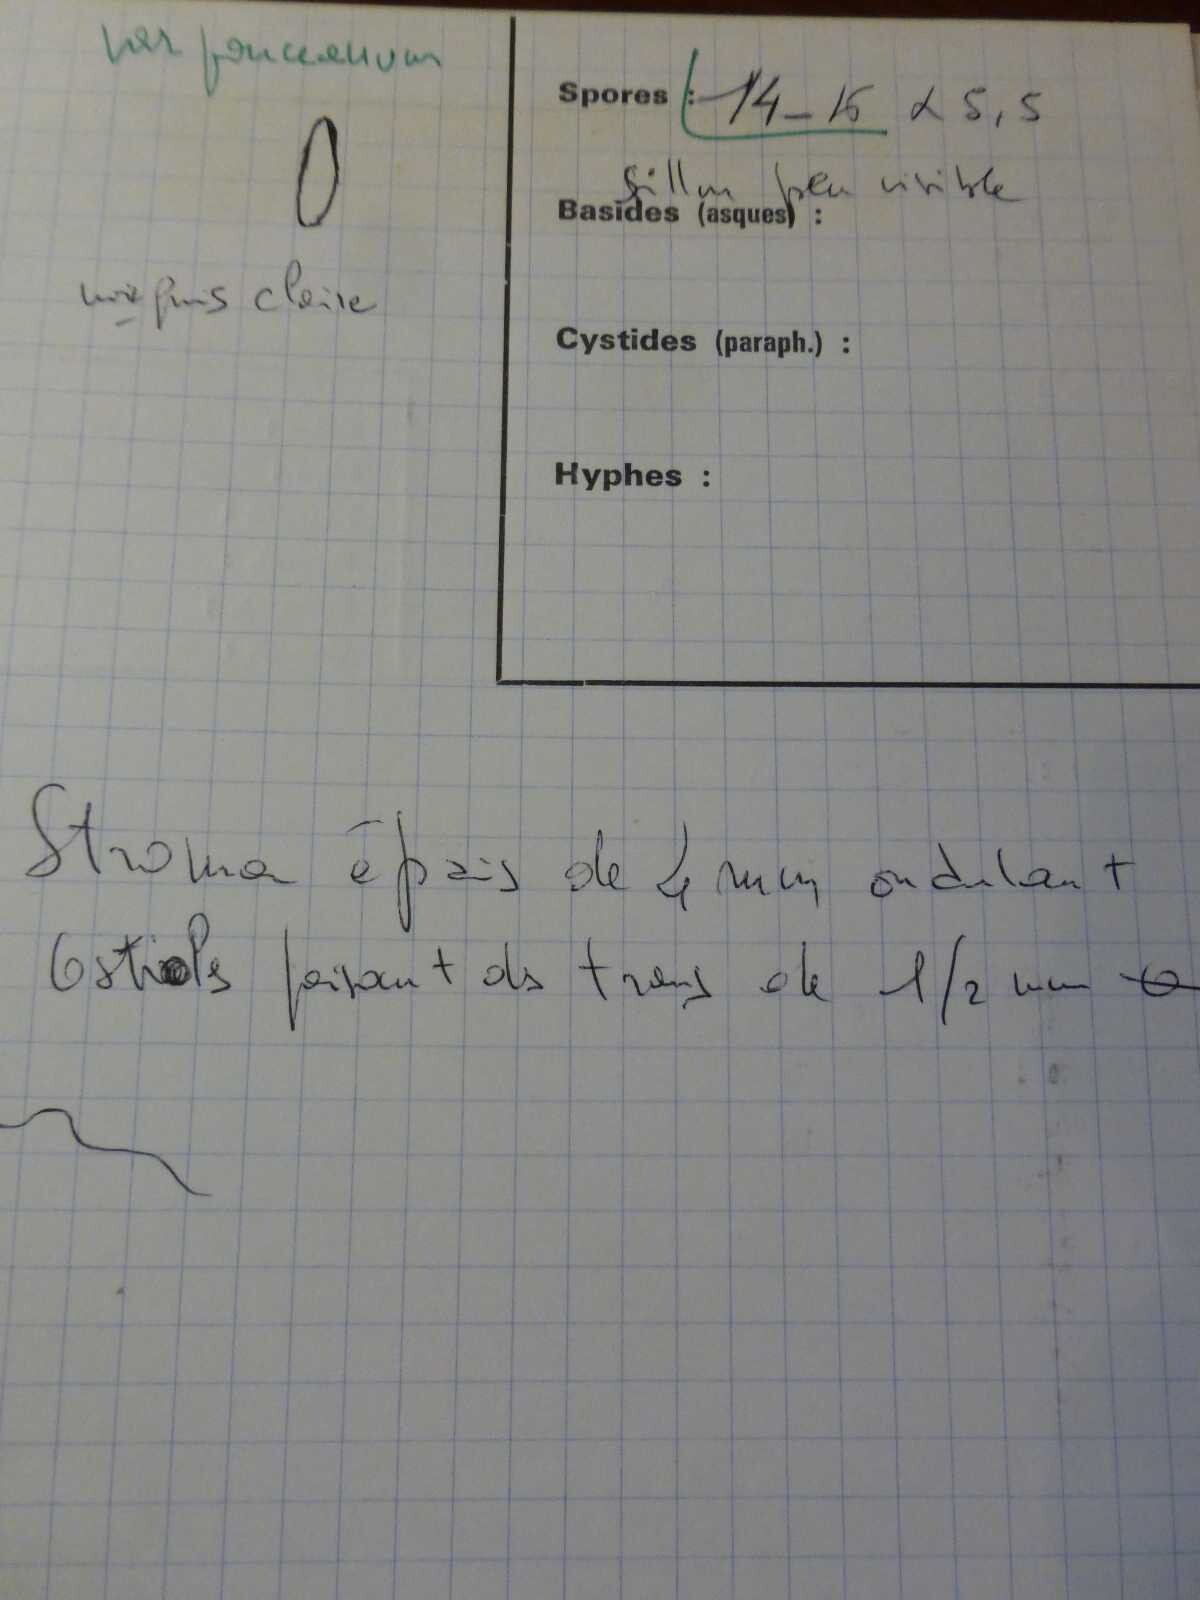 Spores : 14-16 x 5,5
sillon peu visible
Basides (asques) :
claire
Cystides (paraph.) :
Hyphes :
Stroma épais de 4 mm ondulant
Ostioles faisant des trous de 1/2 mm